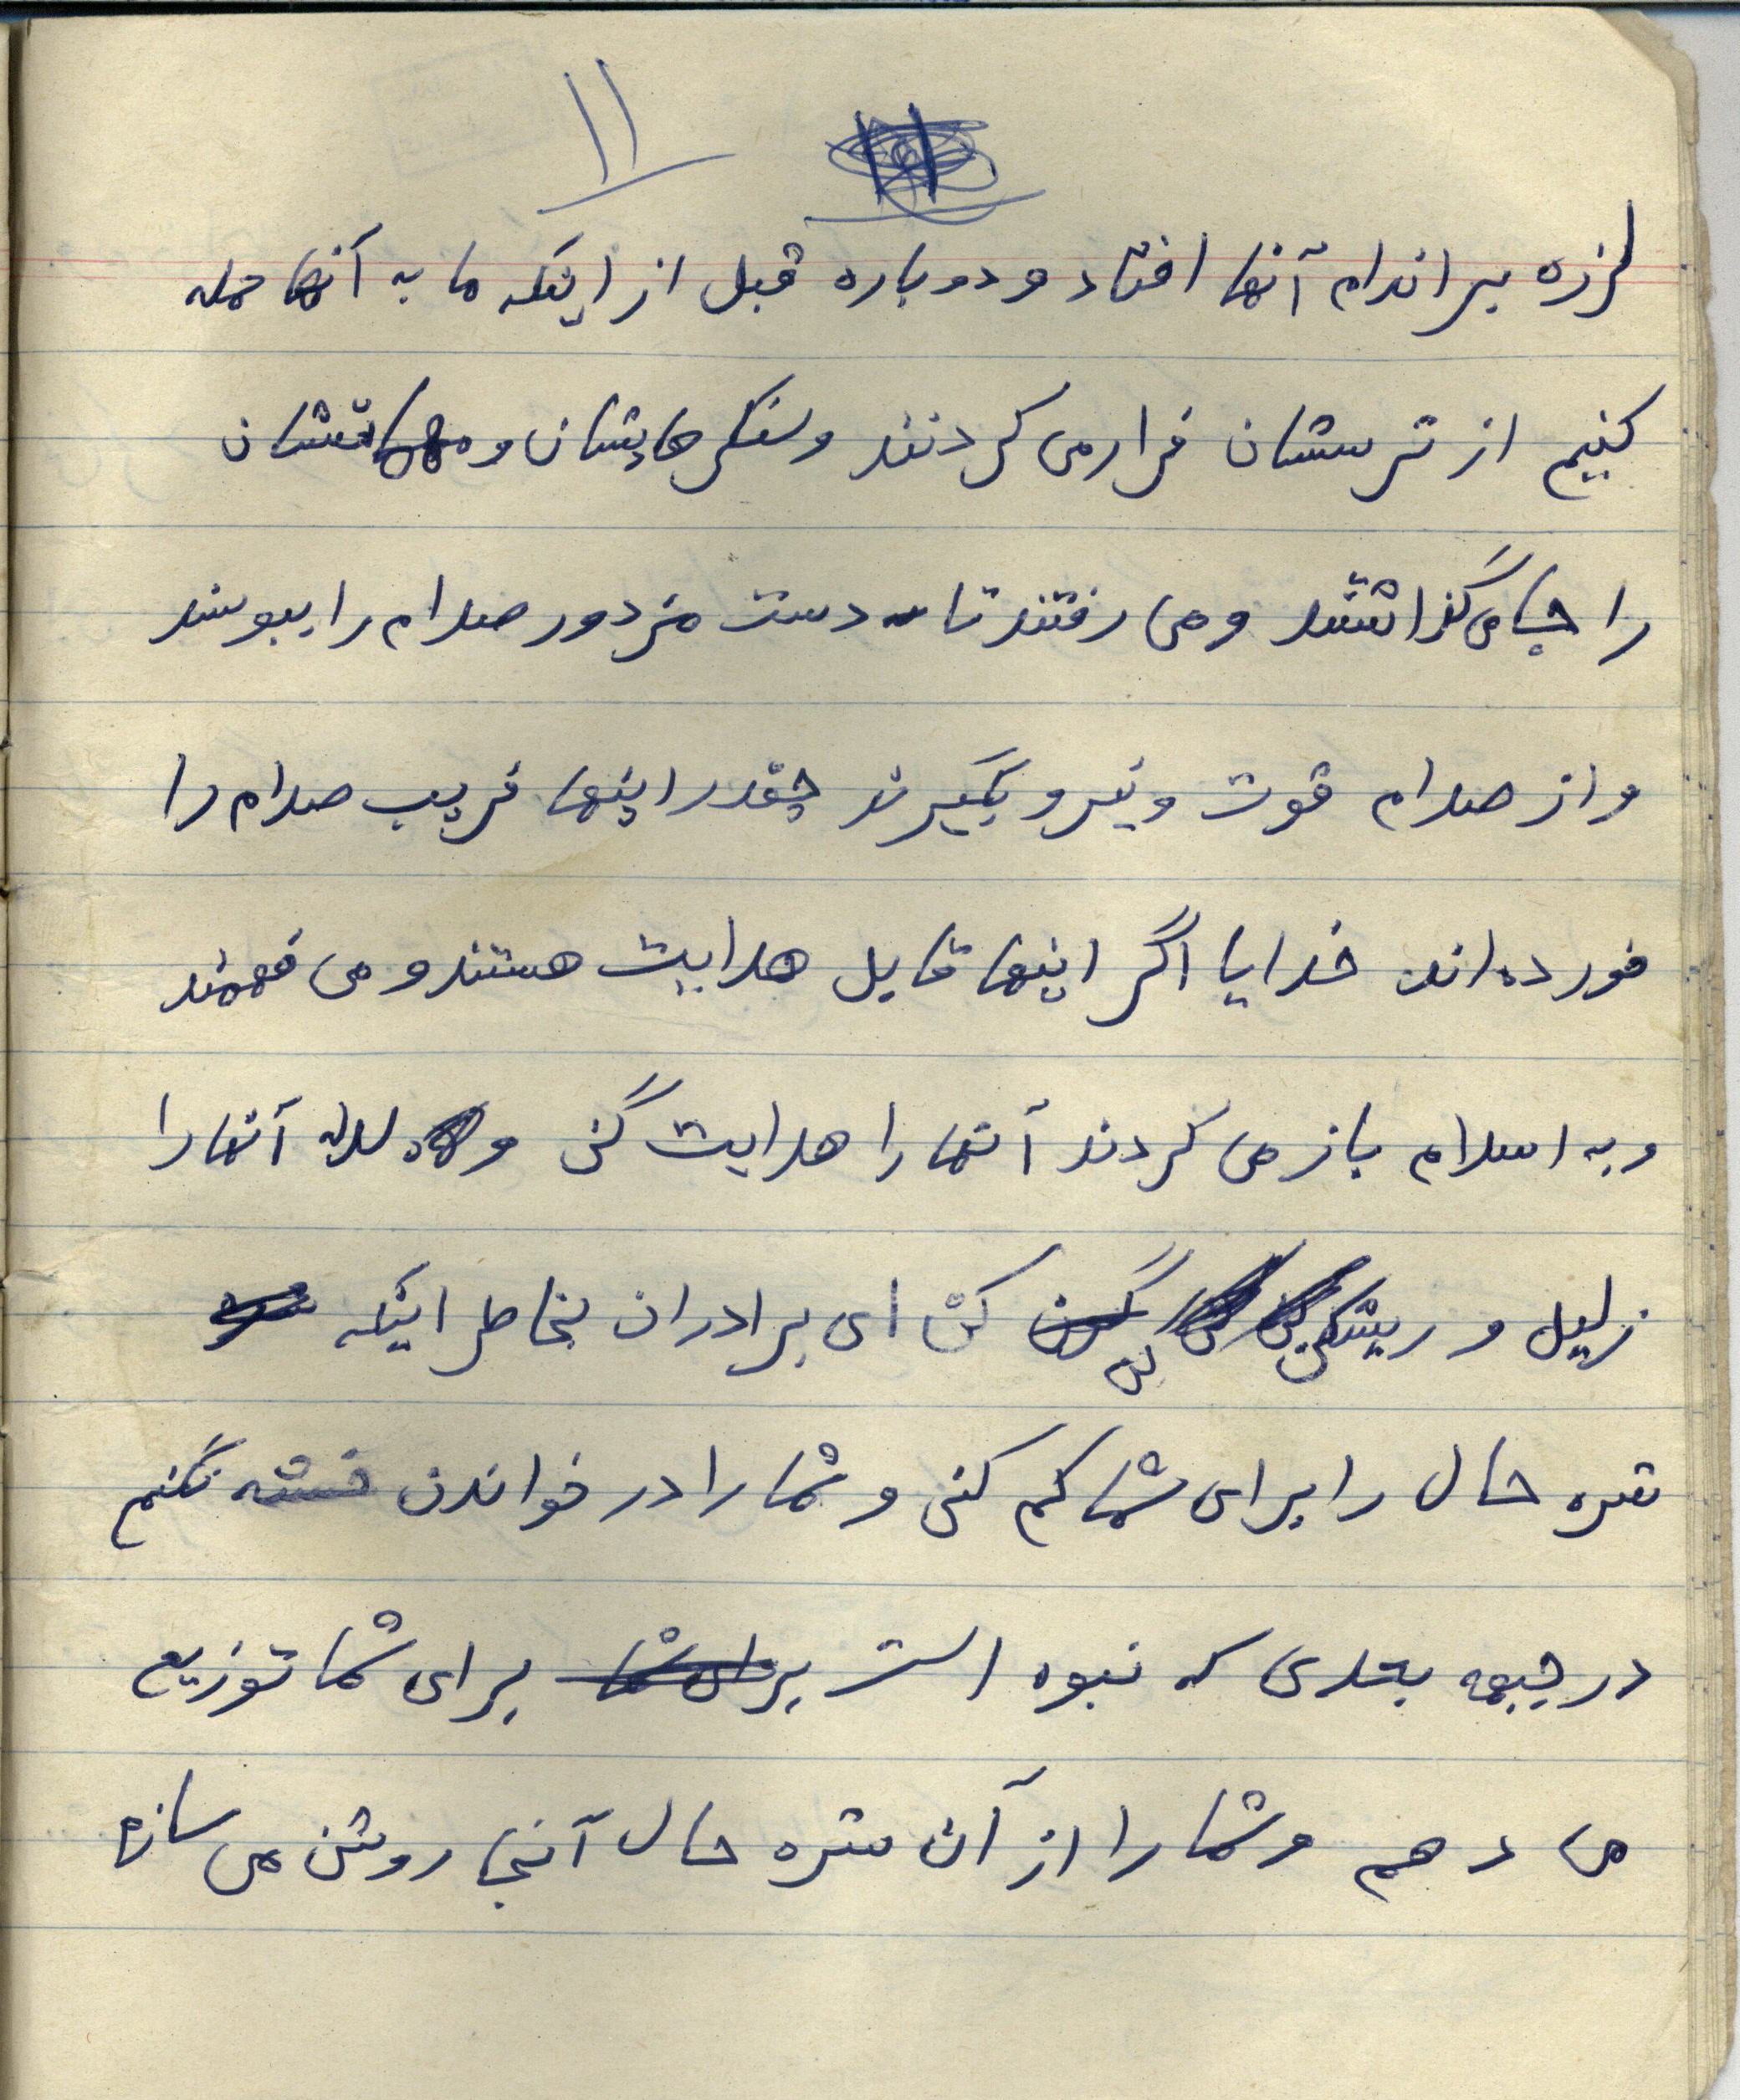 ۱۱
لرزه بر اندام آنها افتاد و دوباره قبل از اینکه ما به آنها حمله
کنیم از ترسشان فرار می کردنند و سنگرهایشان و مهماتشان
را جا می گذاشتند و می رفتند تا دست مزدور صدام را ببوسند
و از صدام قوت و نیرو بگیرند چقدر اینها فریب صدام را
خورده اند خدایا اگر اینها قابل هدایت هستند و می فهمند
و به اسلام باز می کردند آنها را هدایت کن و آنها را
زلیل و کن ای برادران بخاطر اینکه
حال را برای شما کم کنی و شما را در خواندن خسته نکنم
در جبهه بعدی که نبوه است برای شما توزیع
می دهم و شما را از آن حال آنجا روشن می سازم